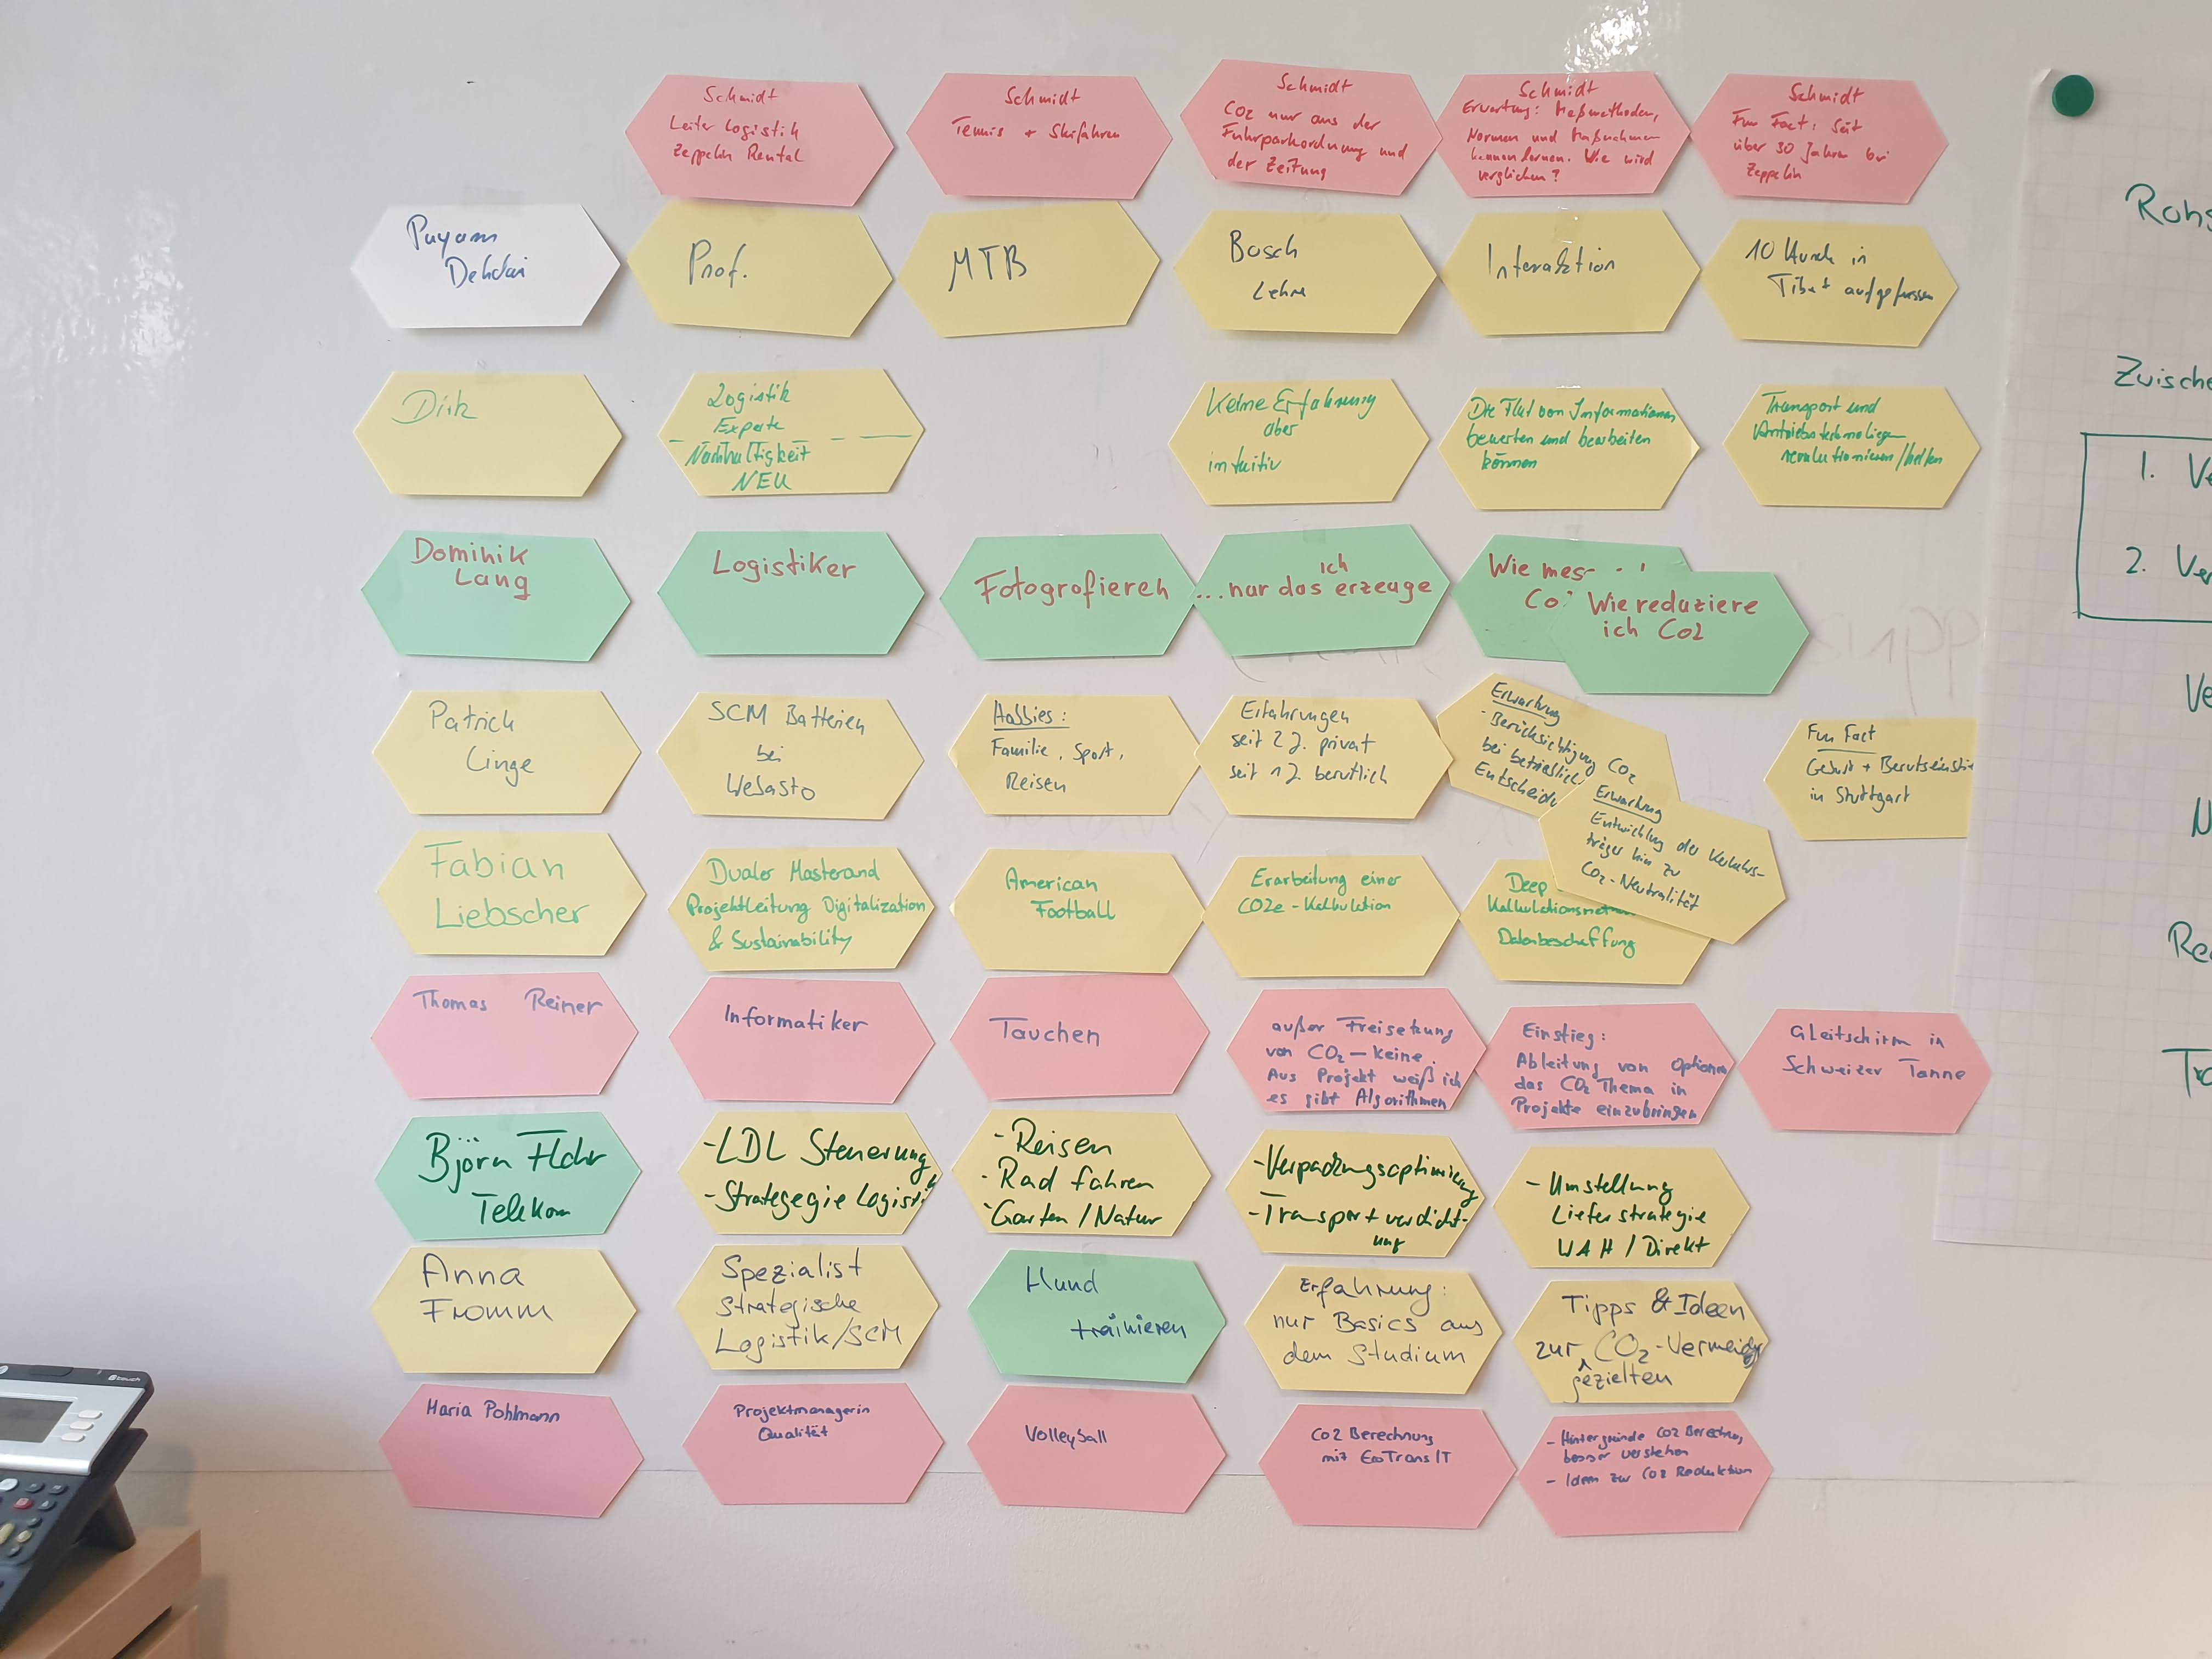 Schmidt
Leiter Logistik
Zeppelin Rental
Schmidt
Tennis + Skifahren
Schmidt
CO2 nur aus der
Fuhrparkordnung und
der Zeitung
Schmidt
Erwartung: Meßmethoden,
Normen und Maßnahmen
kennenlernen. Wie wird
verglichen?
Schmidt
Fun Fact: Seit
über 30 Jahren bei
Zeppelin
Payam
Dehdari
Prof.
MTB
Bosch
Lehre
Interaktion
10 in
Tibet aufgefressen
Dirk
Logistik
Experte
Nachhaltigkeit
NEU
Keine Erfahrung
aber
intuitiv
Die Flut von Informationen
bewerten und bearbeiten
können
Transport und
Antriebstechnologien
revolutionieren/helfen
Dominik
Lang
Logistiker
Fotografieren
ich
...nur das erzeuge
Wie mes
Co
Wie reduziere
ich Co2
Patrick
Linge
SCM Batterien
bei
Webasto
Hobbies:
Familie, Sport,
Reisen
Erfahrungen
seit 2 J. privat
seit 1 J. beruflich
Erwartung
- Berücksichtigung CO2
bei betrieblich
Entscheidu
Erwartung
Entwicklung der Verkehrs-
träger hin zu
CO2-Neutralität
Fun Fact
Geburt + Berufseinstie
in Stuttgart
Fabian
Liebscher
Dualer Masterand
Projektleitung Digitalization
& Sustainability
American
Football
Erarbeitung einer
CO2e-Kalkulation
Deep
Datenbeschaffung
Thomas Reiner
Informatiker
Tauchen
außer Freisetzung
von CO2 - keine.
Aus Projekt weiß ich
es gibt Algorithmen
Einstieg:
Ableitung von Optionen
das CO2 Thema in
Projekte einzubringen
Gleitschirm in
Schweizer Tanne
Björn Flohr
Telekom
- LDL Steuerung
- Strategegie Logistik
- Reisen
- Rad fahren
- Garten / Natur
- Verpackungsoptimierung
- Transportverdicht-
ung
- Umstellung
Lieferstrategie
WAH / Direkt
Anna
Fromm
Spezialist
strategische
Logistik/SCM
Hund
trainieren
Erfahrung:
nur Basics aus
dem Studium
Tipps & Ideen
zur CO2-Vermeidg
gezielten
Maria Pohlmann
Projektmanagerin
Qualität
Volleyball
CO2 Berechnung
mit EcoTransIT
- Hintergründe CO2 Berechnung
besser verstehen
- Ideen zur CO2 Reduktion
Rohs
Zwische
1. Ve
2. Ve
Ve
N
Re
Tra